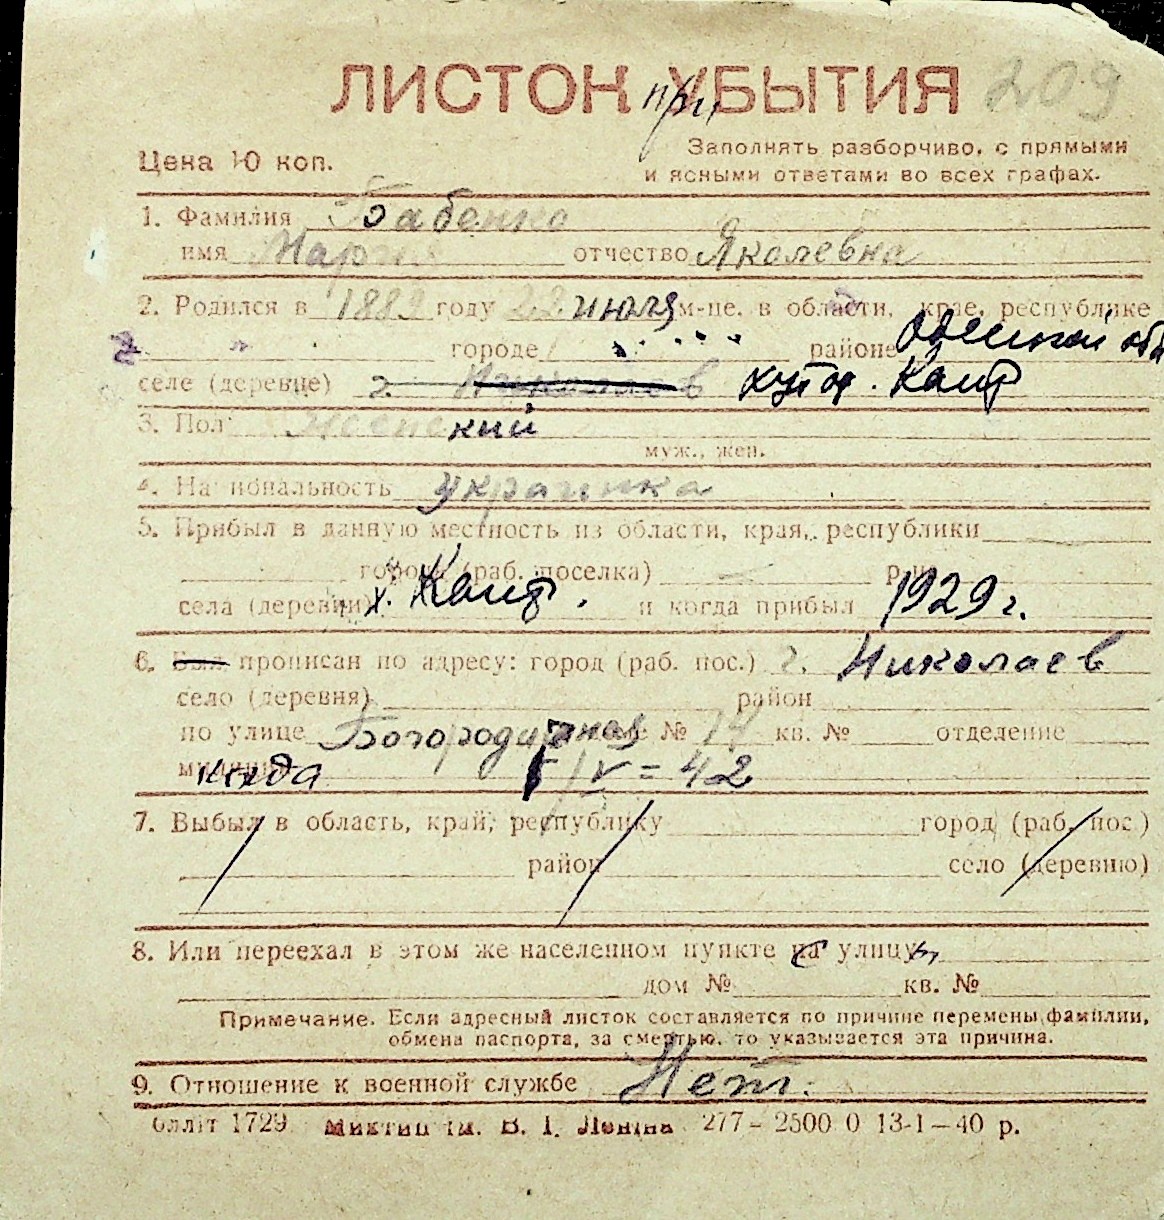 ЛИСТОК при УБЫТИЯ 209
Цена 10 коп.
Заполнять разборчиво, с прямыми
и ясными ответами во всех графах.
1. Фамилия Бабенко
имя Мария отчество Яколевна
2. Родился в 1889 году 22 июля м-це, в области, крае, республике
городе районе Одесской обл
селе (деревце) г. Николаев хутор. Канф
3. Пол Женский
муж., жен.
4. Национальность украинка
5. Прибыл в данную местность из области, края, республики
города (раб. поселка) р-на
села (деревни) х. Канф. и когда прибыл 1929 г.
6. Был прописан по адресу: город (раб. пос.) г. Николаев
село (деревня) район
по улице Богородичная № 14 кв. № отделение
милиции когда IV = 42
7. Выбыл в область, край, республику город (раб. пос.)
район село (деревню)
8. Или переехал в этом же населенном пункте на улицу
дом № кв. №
Примечание. Если адресный листок составляется по причине перемены фамилии,
обмена паспорта, за смертью, то указывается эта причина.
9. Отношение к военной службе Нет.
1729 им. В. І. Леніна 277 – 2500 0 13-1 – 40 р.